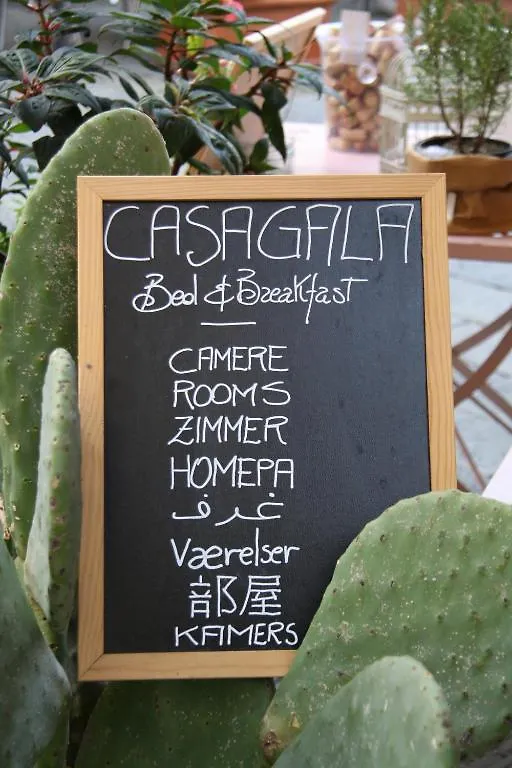 CASAGALA
Bed & Breakfast
CAMERE
ROOMS
ZIMMER
НОМЕРА
غرف
Værelser
部屋
KAMERS